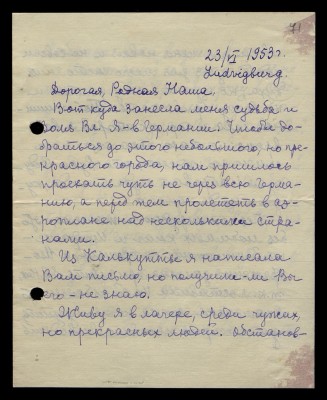 71
23/VI 1953 г.
Ludvigsburg.
Дорогая, Родная Наша,
Вот куда занесла меня судьба и
воля Вл. Я - в Германии. Чтобы до-
браться до этого небольшого, но пре-
красного города, нам пришлось
проехать чуть не через всю Герма-
нию, а перед тем пролететь в аэ-
роплане над несколькими стра-
нами.
Из Калькутты я написала
Вам письмо, но получили-ли Вы
его - не знаю.
Живу я в лагере, среди чужих,
но прекрасных людей. Обстанов-